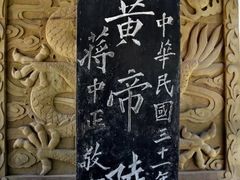 中華民國三十一年
黃帝陵
蔣中正敬